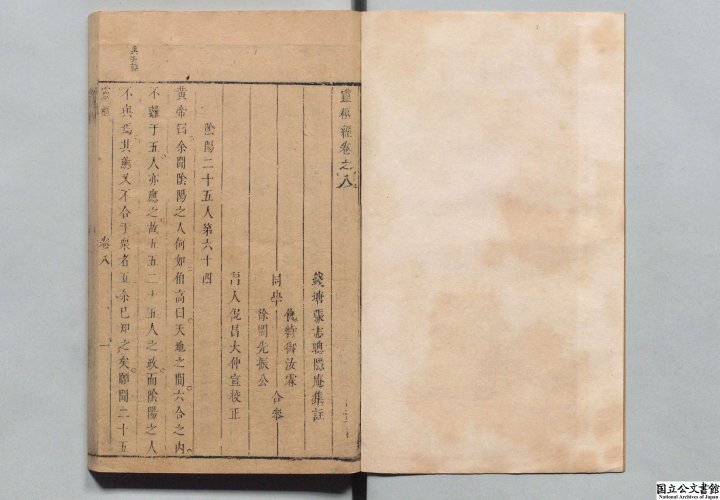 靈樞經卷之八
錢塘張志聰隱庵集註
同學
仇時御汝霖
徐開先振公
合參
門人倪昌大仲宣校正
陰陽二十五人第六十四
黃帝曰余聞陰陽之人何如伯高曰天地之間六合之內
不離于五人亦應之故五五二十五人之政而陰陽之人
不與焉其態又不合于眾者五余已知之矣願聞二十五
靈樞
卷八
一
国立公文書館
National Archives of Japan